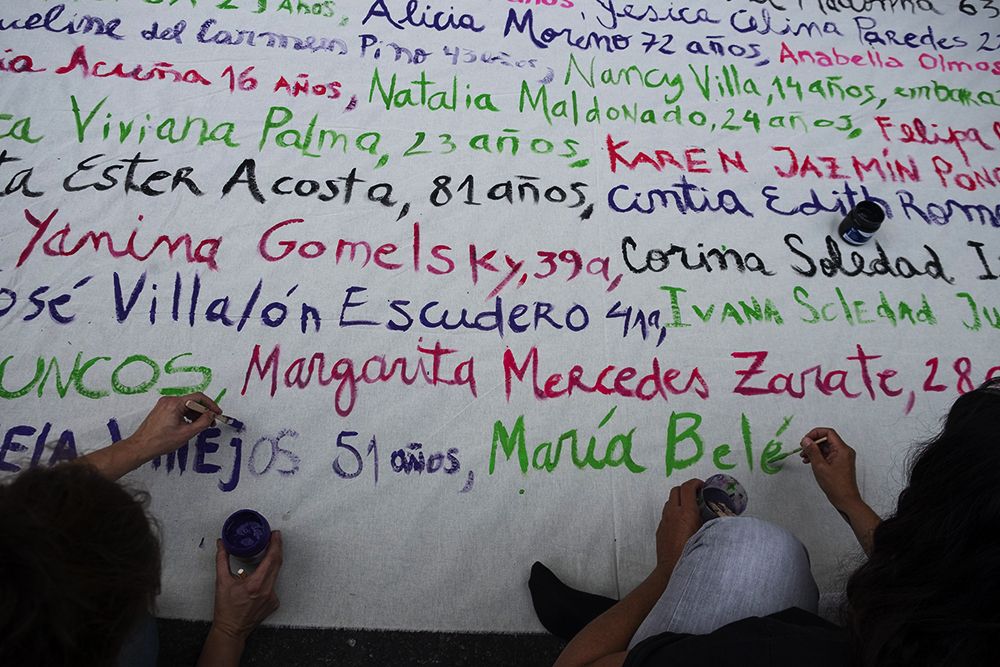 23 Años,
63
ueline del Carmen Pino 43 años, Alicia Moreno 72 años, Yesica Celina Paredes 22
ia Acuña 16 AÑOS, Natalia Maldonado, 24 años, Nancy Villa, 14 años, embara Anabella Olmos
ca Viviana Palma, 23 años, KAREN JAZMÍN POND Felipa
ta Ester Acosta, 81 años, Cintia Edith Rom
Yanina Gomelsky, 39a, Corina Soledad I
osé Villalón Escudero 41a, IVANA SOLEDAD Ju
UNCOS, Margarita Mercedes Zarate, 28a
ELA Vallejos 51 años, María Belé